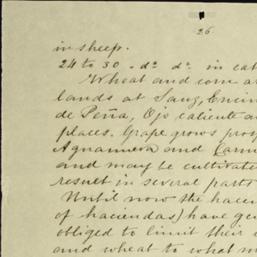 26
in sheep.
24 to 30 - do do in cat
Wheat and corn a
lands at Sauz, Encin
de Peña, Ojo caliente a
places. Grape grows pro
and Carm
and may be cultivate
result in several parts
Until now the hace
of haciendas) have ge
obliged to limit their
and wheat to what m